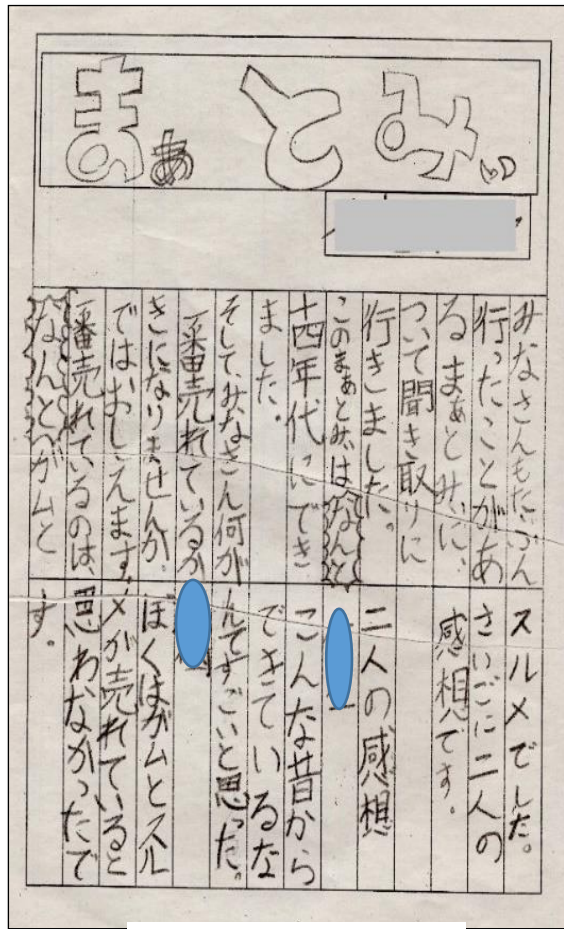 まぁとみぃ
みなさんもたぶん
行ったことがあ
るまぁとみぃに、
ついて聞き取りに
行きました。
このまぁとみぃはなんと
十四年代にでき
ました。
そして、みなさん何が
一番売れているか
きになりませんか。
ではおしえます。
一番売れているのは、
なんとガムと
スルメでした。
さいごに二人の
感想です。
二人の感想
こんな昔から
できているな
んてすごいと思った。
ぼくはガムとスル
メが売れていると
思わなかったで
す。